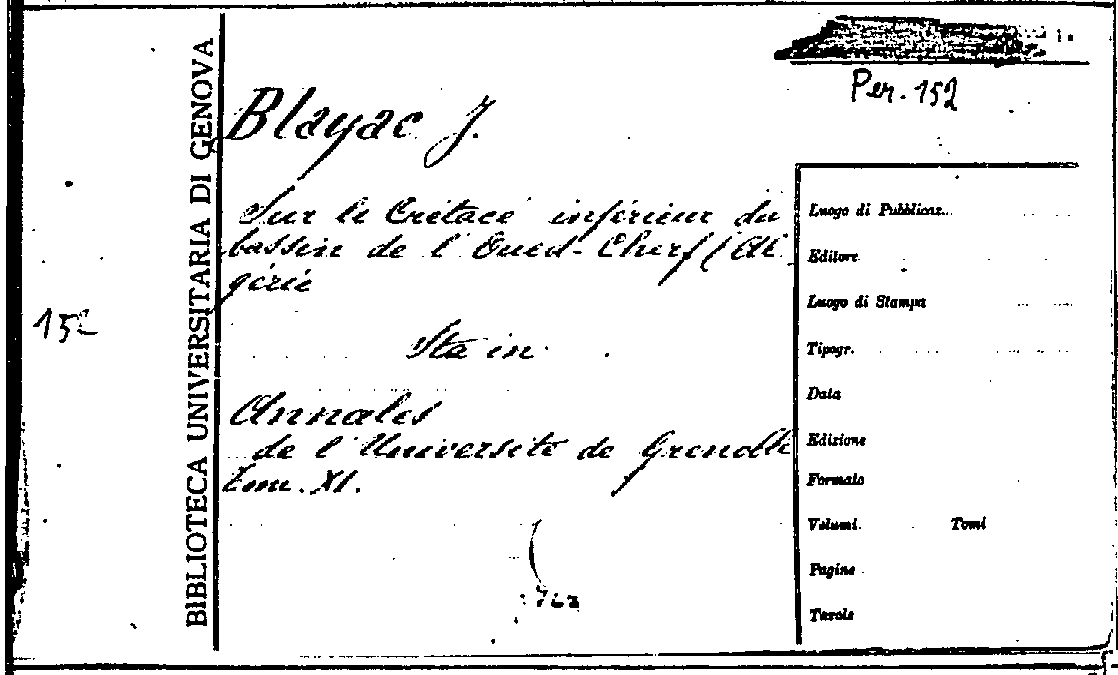 BIBLIOTECA UNIVERSITARIA DI GENOVA
Per. 152
152
Blayac J.
Sur le Crétacé inférieur du
bassin de l'Oued-Cherf (Al
gérie
Sta in
Annales
de l'Université de Grenoble
Tom. XI.
Luogo di Pubblicaz...
Editore
Luogo di Stampa
Tipogr.
Data
Edizione
Formato
Volumi Tomi
Pagine
Tavole